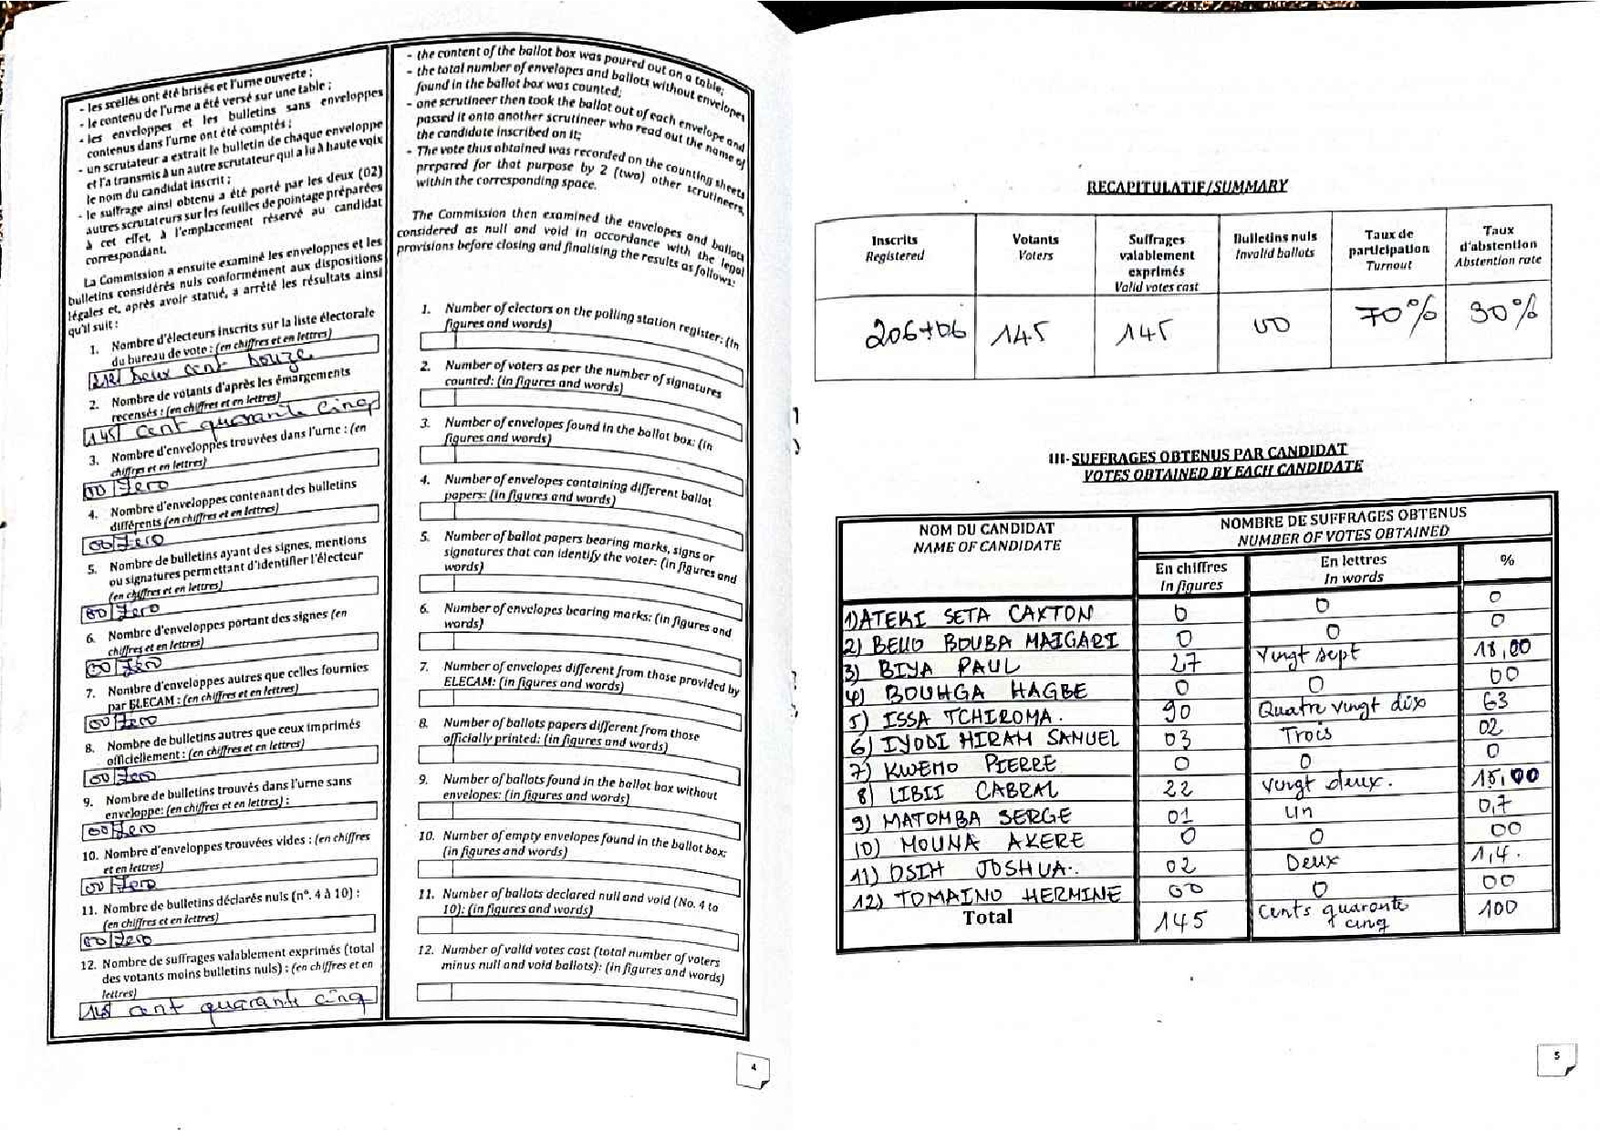 - les scellés ont été brisés et l'urne ouverte ;
- le contenu de l'urne a été versé sur une table ;
- les enveloppes et les bulletins sans enveloppes
contenus dans l'urne ont été comptés ;
- un scrutateur a extrait le bulletin de chaque enveloppe
et l'a transmis à un autre scrutateur qui a lu à haute voix
le nom du candidat inscrit ;
- le suffrage ainsi obtenu a été porté par les deux (02)
autres scrutateurs sur les feuilles de pointage préparées
à cet effet, à l'emplacement réservé au candidat
correspondant.
La Commission a ensuite examiné les enveloppes et les
bulletins considérés nuls conformément aux dispositions
légales et, après avoir statué, a arrêté les résultats ainsi
qu'il suit :
1. Nombre d'électeurs inscrits sur la liste électorale
du bureau de vote : (en chiffres et en lettres)
212 Deux cent douze
2. Nombre de votants d'après les émargements
recensés : (en chiffres et en lettres)
145 cent quarante cinq
3. Nombre d'enveloppes trouvées dans l'urne : (en
chiffres et en lettres)
00 Zero
4. Nombre d'enveloppes contenant des bulletins
différents (en chiffres et en lettres)
00 Zero
5. Nombre de bulletins ayant des signes, mentions
ou signatures permettant d'identifier l'électeur
(en chiffres et en lettres)
00 Zero
6. Nombre d'enveloppes portant des signes (en
chiffres et en lettres)
00 Zéro
7. Nombre d'enveloppes autres que celles fournies
par ELECAM : (en chiffres et en lettres)
00 Zero
8. Nombre de bulletins autres que ceux imprimés
officiellement : (en chiffres et en lettres)
00 Zero
9. Nombre de bulletins trouvés dans l'urne sans
enveloppe: (en chiffres et en lettres) :
00 Zero
10. Nombre d'enveloppes trouvées vides : (en chiffres
et en lettres)
00 Zero
11. Nombre de bulletins déclarés nuls (n°. 4 à 10) :
(en chiffres et en lettres)
00 Zero
12. Nombre de suffrages valablement exprimés (total
des votants moins bulletins nuls) : (en chiffres et en
lettres)
145 cent quarante cinq
- the content of the ballot box was poured out on a table;
- the total number of envelopes and ballots without envelopes
found in the ballot box was counted;
- one scrutineer then took the ballot out of each envelope and
passed it onto another scrutineer who read out the name of
the candidate inscribed on it;
- The vote thus obtained was recorded on the counting sheets
prepared for that purpose by 2 (two) other scrutineers,
within the corresponding space.
The Commission then examined the envelopes and ballots
considered as null and void in accordance with the legal
provisions before closing and finalising the results as follows:
1. Number of electors on the polling station register: (in
figures and words)
2. Number of voters as per the number of signatures
counted: (in figures and words)
3. Number of envelopes found in the ballot box: (in
figures and words)
4. Number of envelopes containing different ballot
papers: (in figures and words)
5. Number of ballot papers bearing marks, signs or
signatures that can identify the voter: (in figures and
words)
6. Number of envelopes bearing marks: (in figures and
words)
7. Number of envelopes different from those provided by
ELECAM: (in figures and words)
8. Number of ballots papers different from those
officially printed: (in figures and words)
9. Number of ballots found in the ballot box without
envelopes: (in figures and words)
10. Number of empty envelopes found in the ballot box:
(in figures and words)
11. Number of ballots declared null and void (No. 4 to
10): (in figures and words)
12. Number of valid votes cast (total number of voters
minus null and void ballots): (in figures and words)
4
RECAPITULATIF/SUMMARY
Inscrits Registered Votants Voters Suffrages valablement exprimés Valid votes cast Bulletins nuls Invalid ballots Taux de participation Turnout Taux d'abstention Abstention rate
206+06 145 145 00 70% 30%
III- SUFFRAGES OBTENUS PAR CANDIDAT
VOTES OBTAINED BY EACH CANDIDATE
NOM DU CANDIDAT NOMBRE DE SUFFRAGES OBTENUS
NAME OF CANDIDATE NUMBER OF VOTES OBTAINED
En chiffres En lettres %
In figures In words
1) ATEKI SETA CAXTON 0 0 0
2) BELLO BOUBA MAIGARI 0 0 0
3) BIYA PAUL 27 Vingt sept 18,00
4) BOUHGA HAGBE 0 0 00
5) ISSA TCHIROMA. 90 Quatre vingt dix 63
6) IYODI HIRAM SAMUEL 03 Trois 02
7) KWEMO PIERRE 0 0 0
8) LIBII CABRAL 22 Vingt deux. 15,00
9) MATOMBA SERGE 01 un 0,7
10) MOUNA AKERE 0 0 00
11) OSIH JOSHUA. 02 Deux 1,4.
12) TOMAINO HERMINE 00 0 00
Total 145 Cents quarante cinq 100
5